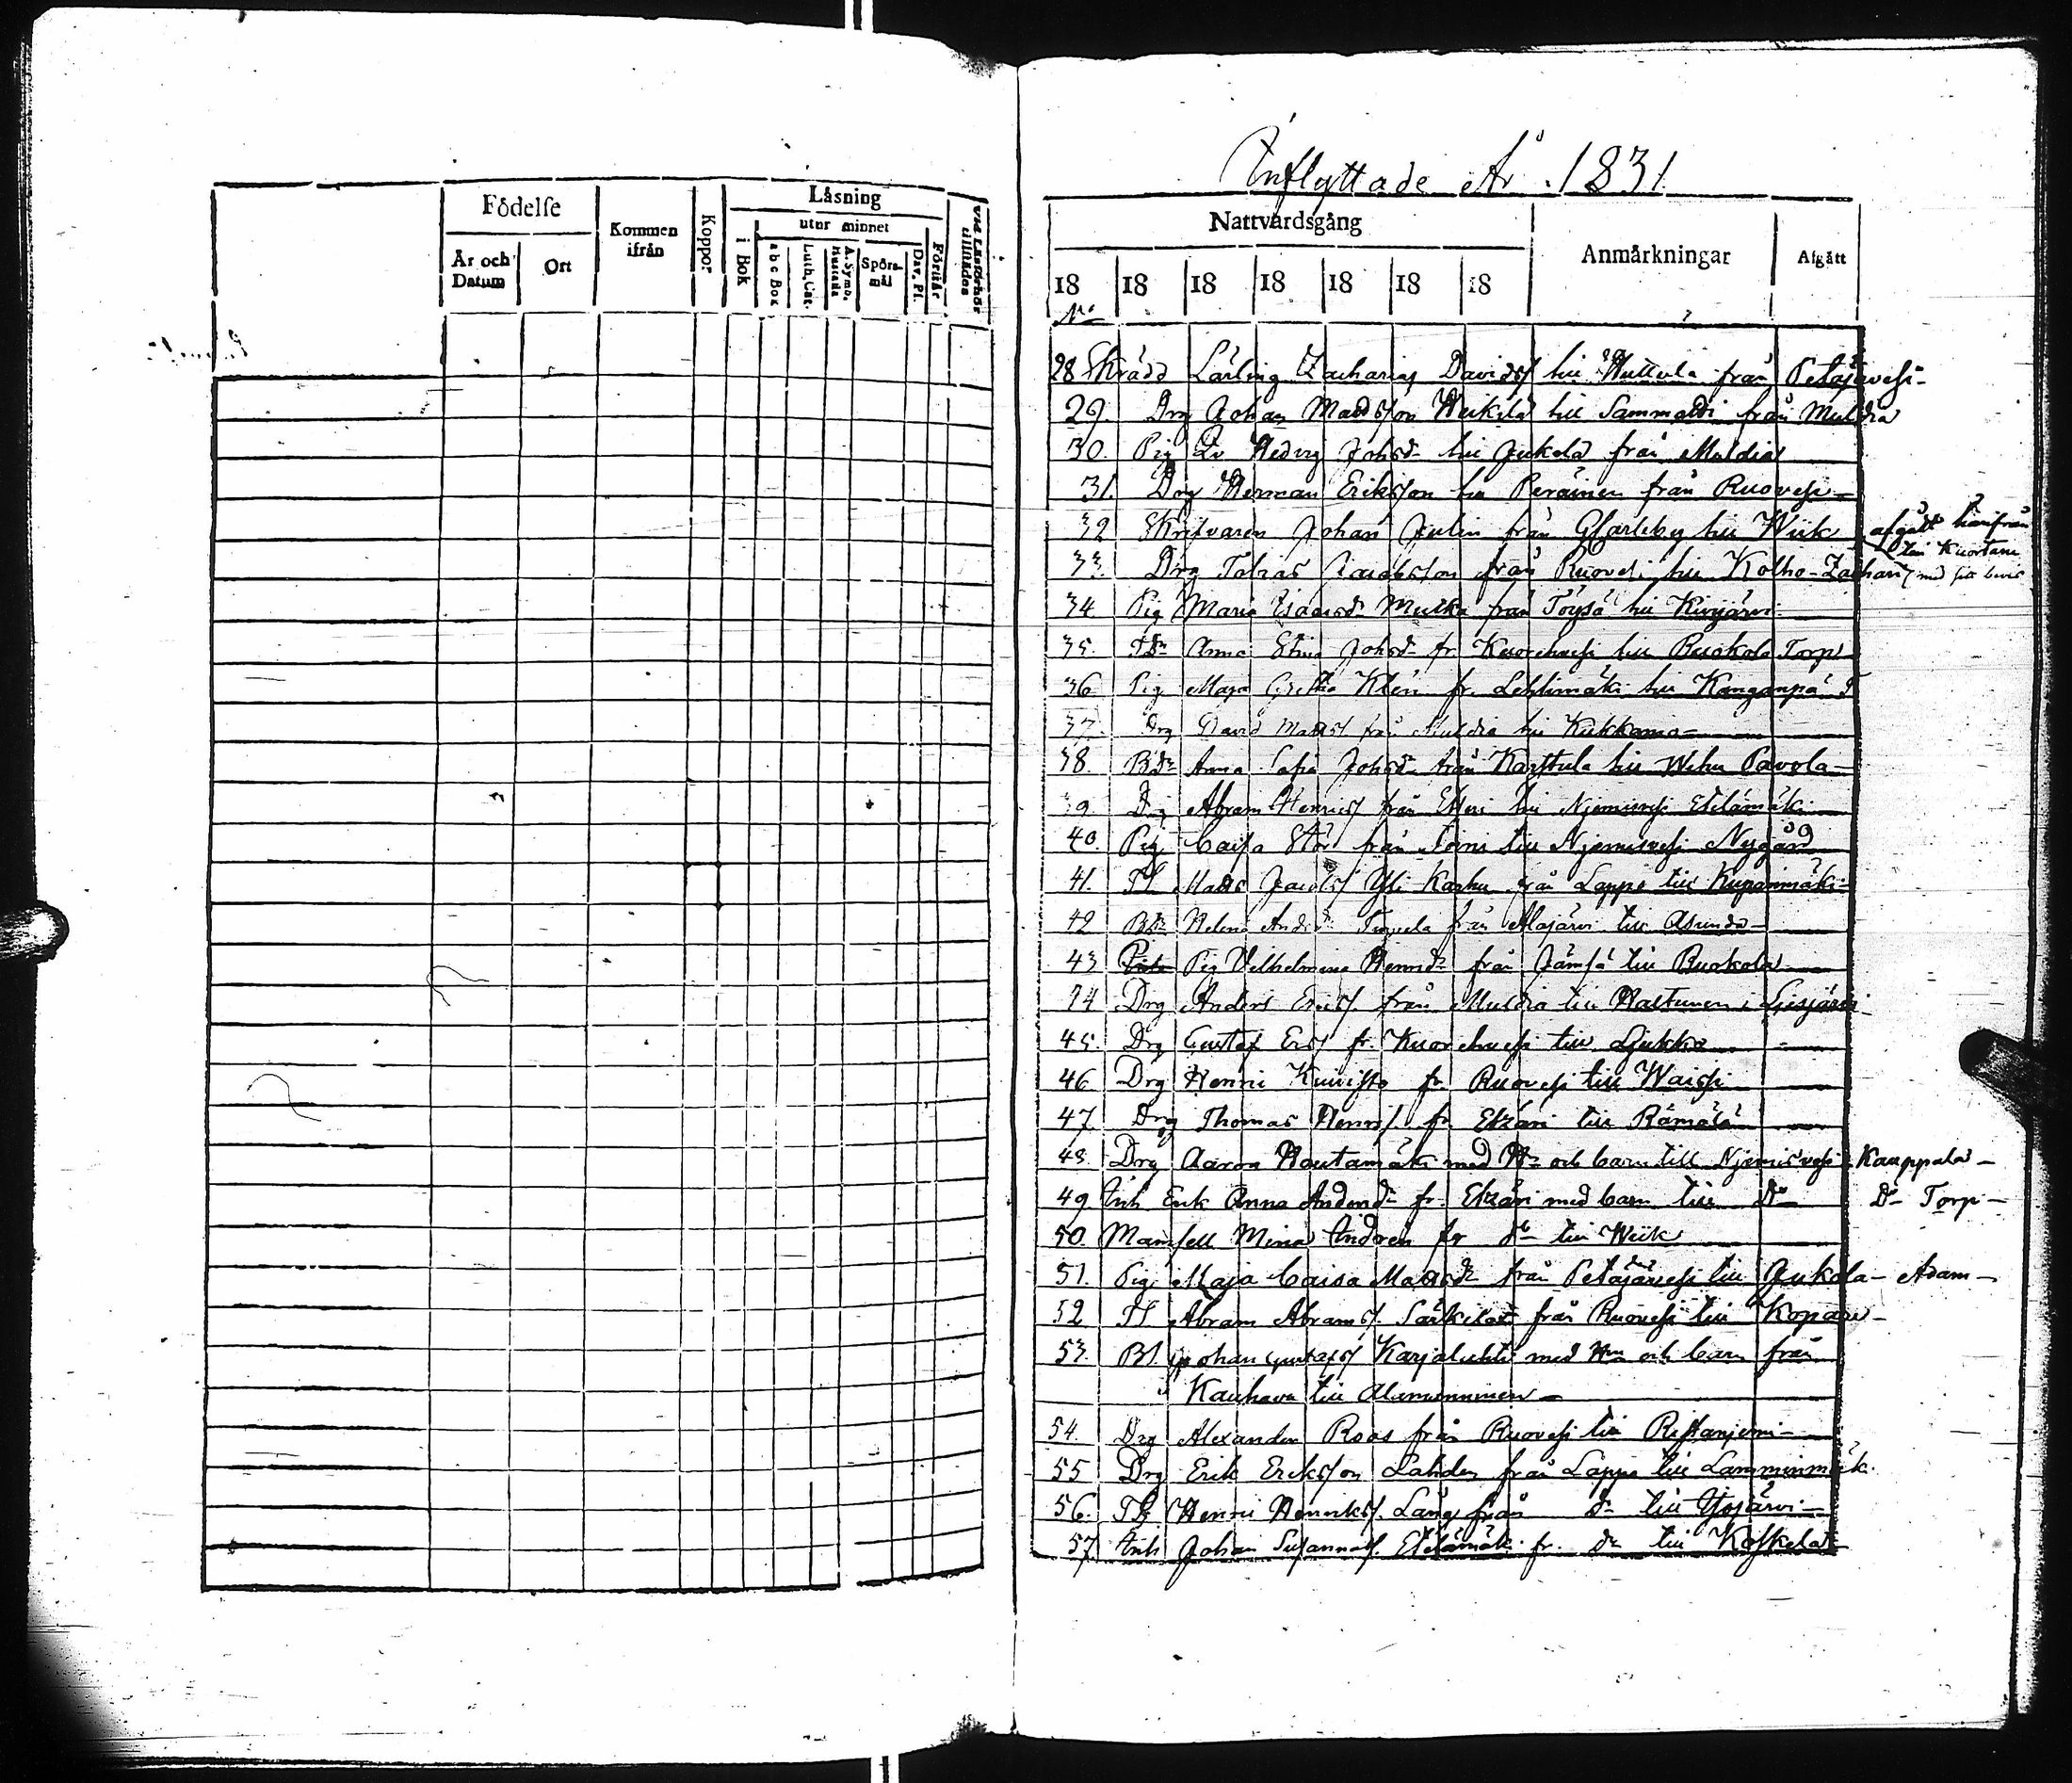 Födelse
Kommen ifrån
Koppor
Läsning
utur minnet
År och Datum
Ort
i Bok
abc Bok
Luth. Cat.
A. Symb. Hustafla
Spörs-mål
Dav. Ps.
Förstår
vid Läsförhör tillstädes
Inflyttade År 1831
Nattvardsgång
Anmärkningar
Afgått
18 18 18 18 18 18 18
No
28 Skrädd Lärling Zacharias Davids/ till Huttula från Petäjävesi
29. Drg Johan Mads/on Heikilä till Sammaldi från Muldia
30. Pig Lo Hedvig Johsdr till Jukola från Muldia
31. Drg Herman Eriks/on till Peräinen från Ruovesi
32 Skrifvaren Johan Julin från Glarleby till Wiik afgått härifrån
till Kuortane
33. Drg Tobias Jacobs/on från Ruovesi till Kolho-Zachari med sitt bevis
34 Pig Maria Isaacsdr från Töysä till Kivijärvi
35. TDr Anna Stina Johsdr fr. Kuorehvesi till Ruokola Torp
36 Pig Maja Greta Klén fr. Lehtimäki till Kanganpä T
37. Drg David Mats/ från Muldia till Kukkamo
38. BDr Anna Sofia Johsdr från Karstula till Wehu Pavola
39. Drg Abram Henrics/ från Etseri till Njemisvesi Etelämäki
40. Pig Caisa Stör från till Njemisvesi Nygård
41. TS Mats Jacobs/ Yli Karhu från Lappo till Kupanmäki
42 BDr Helena Andsdr från Alajärvi till Asunda
43 Pig Vilhelmina Henricdr från Jämsä till Ruokola
44 Drg Anders Erics/ från Muldia till Hastunen i Liesjärvi
45. Drg Gustaf Ers/ fr. Kuorehvesi till Ljukko
46 Drg Henric Kuivisto fr. Ruovesi till Waissi
47. Drg Thomas Henrs/ fr Etzäri till Rämälä
48. Drg Aaron Hautamäki med Hu och barn till Njemisvesi Kauppala
49 Inh Enk Anna Andersdr fr. Etzäri med barn till Do Do Torp
50. Mamsell Mina Indrén fr do till Wiik
51. Pig Maja Caisa Matsdr från Petäjävesi till Jukola Adam
52 TS Abram Abrams/ Särkilax från Ruovesi till Kopan
53. BS. Johan Gustafs/ Karjalahti med Hu och barn från
Kauhava till
54. Drg Alexander Roos från Ruovesi till Ristanjemi
55 Drg Erik Eriks/on Lahden från Lappo till Lamminmäk.
56. TS Henric Henriks/ Lång från do till Ytsjärvi
57 Inh Johan Susannas/ Etelämäki fr. do till Koskela